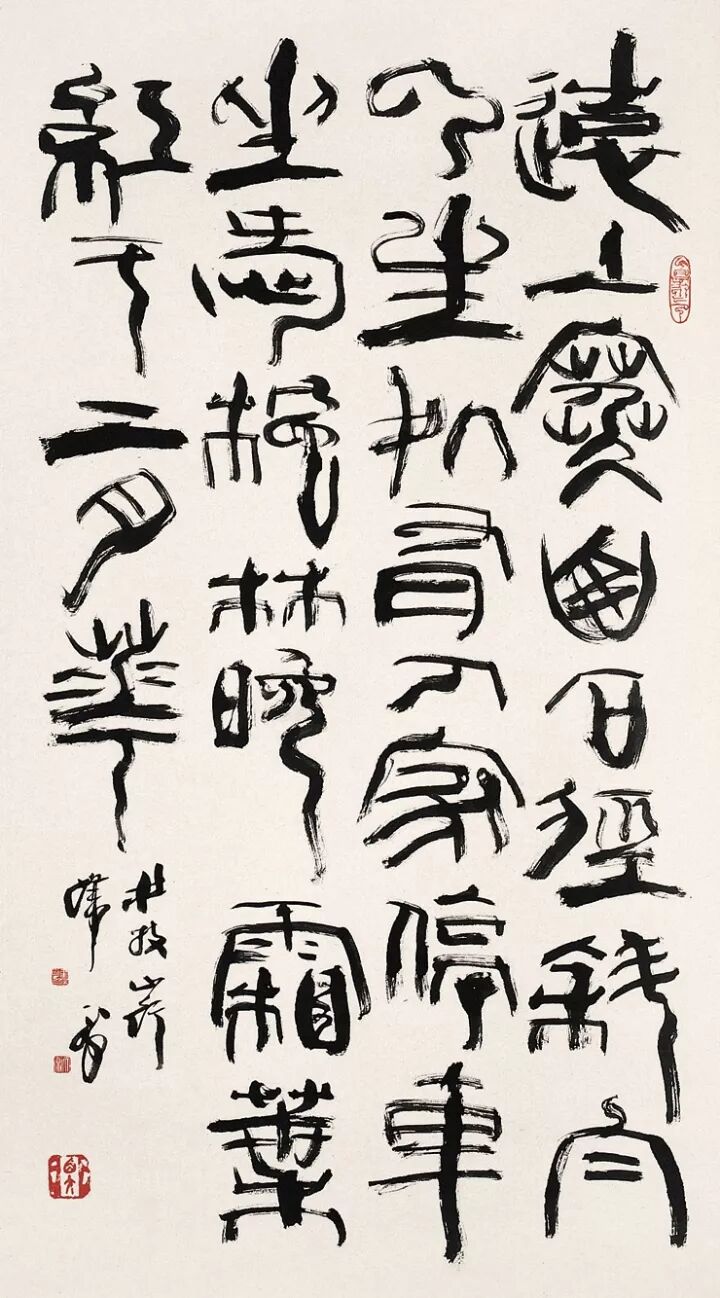 遠上寒山石徑斜白
云生处有人家停車
坐愛楓林晚霜葉
紅于二月華
杜牧山行